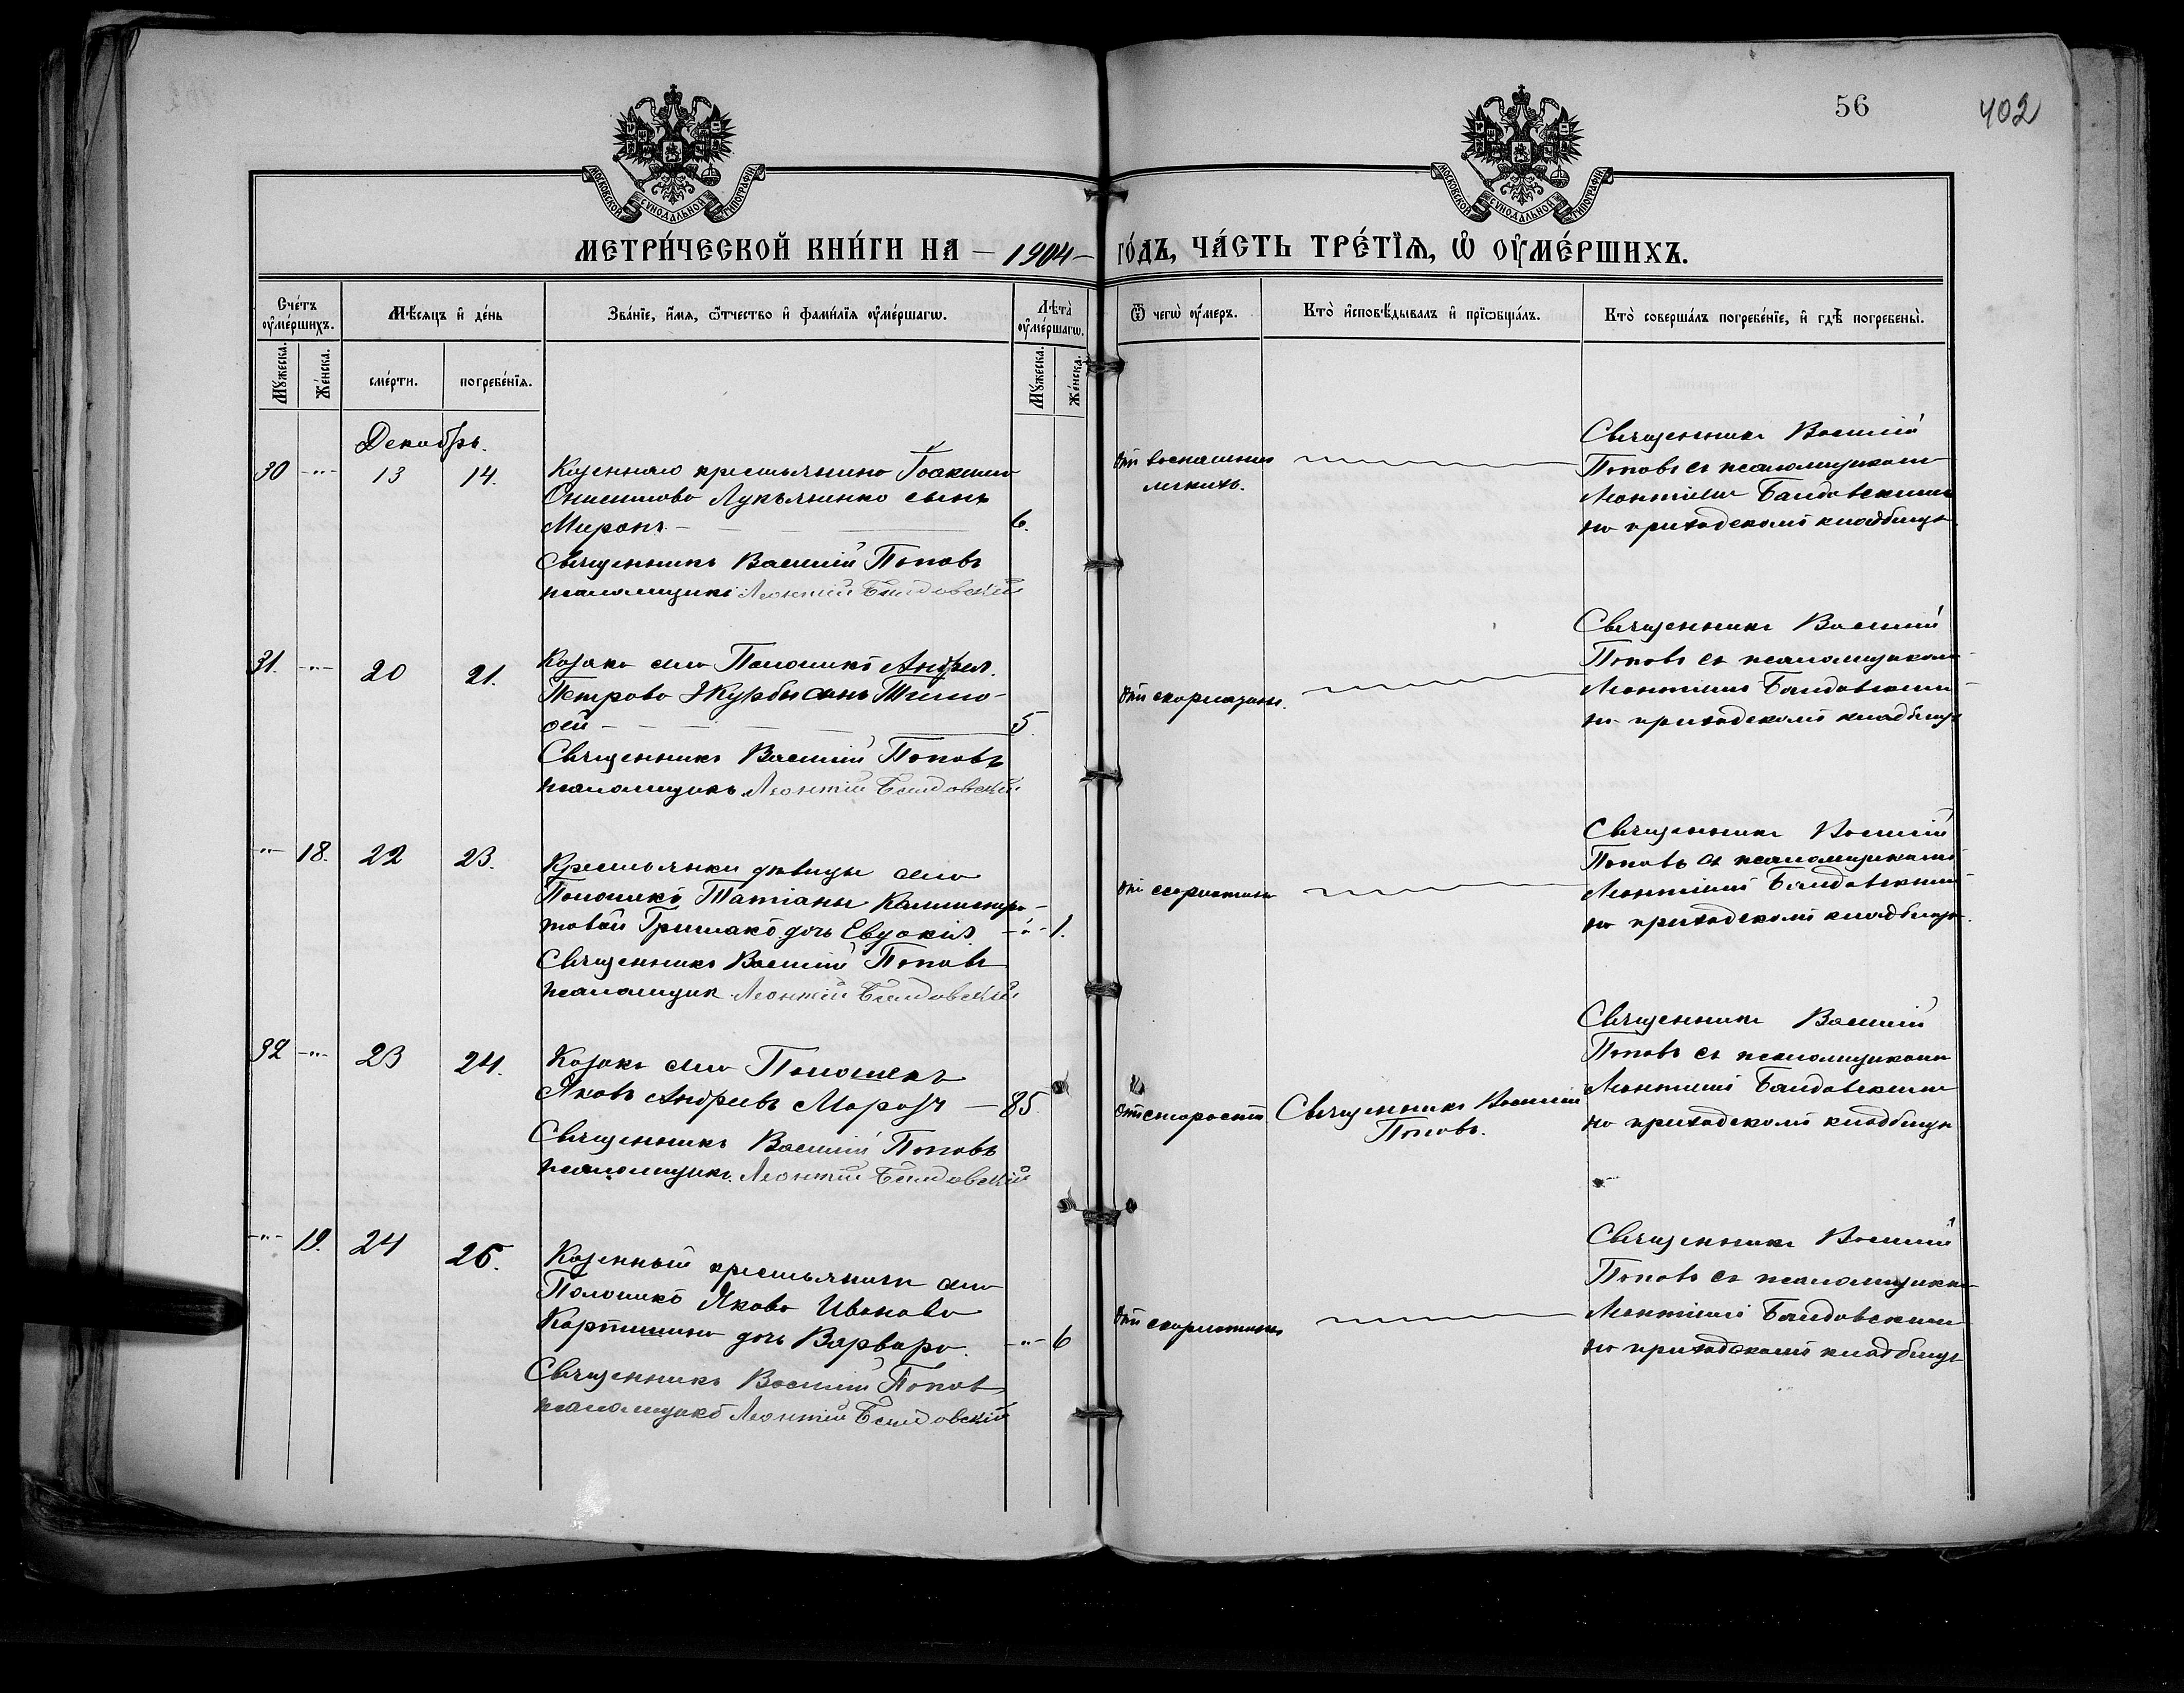 56
402
МОСКОВСКОЙ СѴНОДАЛЬНОЙ ТИПОГРАФІИ
МОСКОВСКОЙ СѴНОДАЛЬНОЙ ТИПОГРАФІИ
МЕТРИ́ЧЕСКОЙ КНИ́ГИ НА — 1904 — ГО́ДЪ, ЧА́СТЬ ТРЕ́ТІѦ, Ѡ҆ ОУ҆МЕ́РШИХЪ.
Сче́тъ оу҆ме́ршихъ.
Мѣ́сяцъ и҆ де́нь
Зва́нїе, и҆́мѧ, ѻ҆́тчество и҆ фами́лїѧ оу҆ме́ршагѡ.
Лѣ́та оу҆ме́ршагѡ.
Ѿ чегѡ̀ оу҆́меръ.
Кто̀ и҆сповѣ́дывалъ и҆ прїѡбща́лъ.
Кто̀ соверша́лъ погребе́нїе, и҆ гдѣ̀ погребены̀.
Мꙋ́жеска.
Же́нска.
сме́рти.
погребе́нїѧ.
Мꙋ́жеска.
Же́нска.
Декабрь.
30 -"- 13 14.
Казеннаго крестьянина Іоакима
Онисимова Лукьяненко сынъ
Миронъ — 6.
Священникъ Василій Поповъ
псаломщикъ Леонтій Баидовскій
Отъ воспаленія
легкихъ.
Священникъ Василій
Поповъ съ псаломщикомъ
Леонтіемъ Баидовскимъ
на приходскомъ кладбищѣ
31. -"- 20 21.
Козака села Полошекъ Андрея
Петрова Журбы сынъ Тимо-
фей — 5
Священникъ Василій Поповъ
псаломщикъ Леонтій Баидовскій
Отъ скарлатины.
Священникъ Василій
Поповъ съ псаломщикомъ
Леонтіемъ Баидовскимъ
на приходскомъ кладбищѣ
-"- 18. 22 23.
Крестьянки дѣвицы села
Полошекъ Татіаны Каллистра-
товой Гришакъ дочь Евдокія. -"- 1.
Священникъ Василій Поповъ
псаломщик Леонтій Баидовскій
Отъ скарлатины
Священникъ Василій
Поповъ съ псаломщикомъ
Леонтіемъ Баидовскимъ
на приходскомъ кладбищѣ.
32 -"- 23 24.
Козакъ села Полошекъ
Яковъ Андреевъ Морозъ — 85
Священникъ Василій Поповъ
псаломщикъ Леонтій Баидовскій
Отъ старости.
Священникъ Василій
Поповъ.
Священникъ Василій
Поповъ съ псаломщикомъ
Леонтіемъ Баидовскимъ
на приходскомъ кладбищѣ
-"- 19. 24 26.
Казенный крестьянинъ села
Полошекъ Якова Иванова
дочь Варвара. -"- 6
Священникъ Василій Поповъ
псаломщикъ Леонтій Баидовскій
Отъ скарлатины
Священникъ Василій
Поповъ съ псаломщикомъ
Леонтіемъ Баидовскимъ
на приходскомъ кладбищѣ